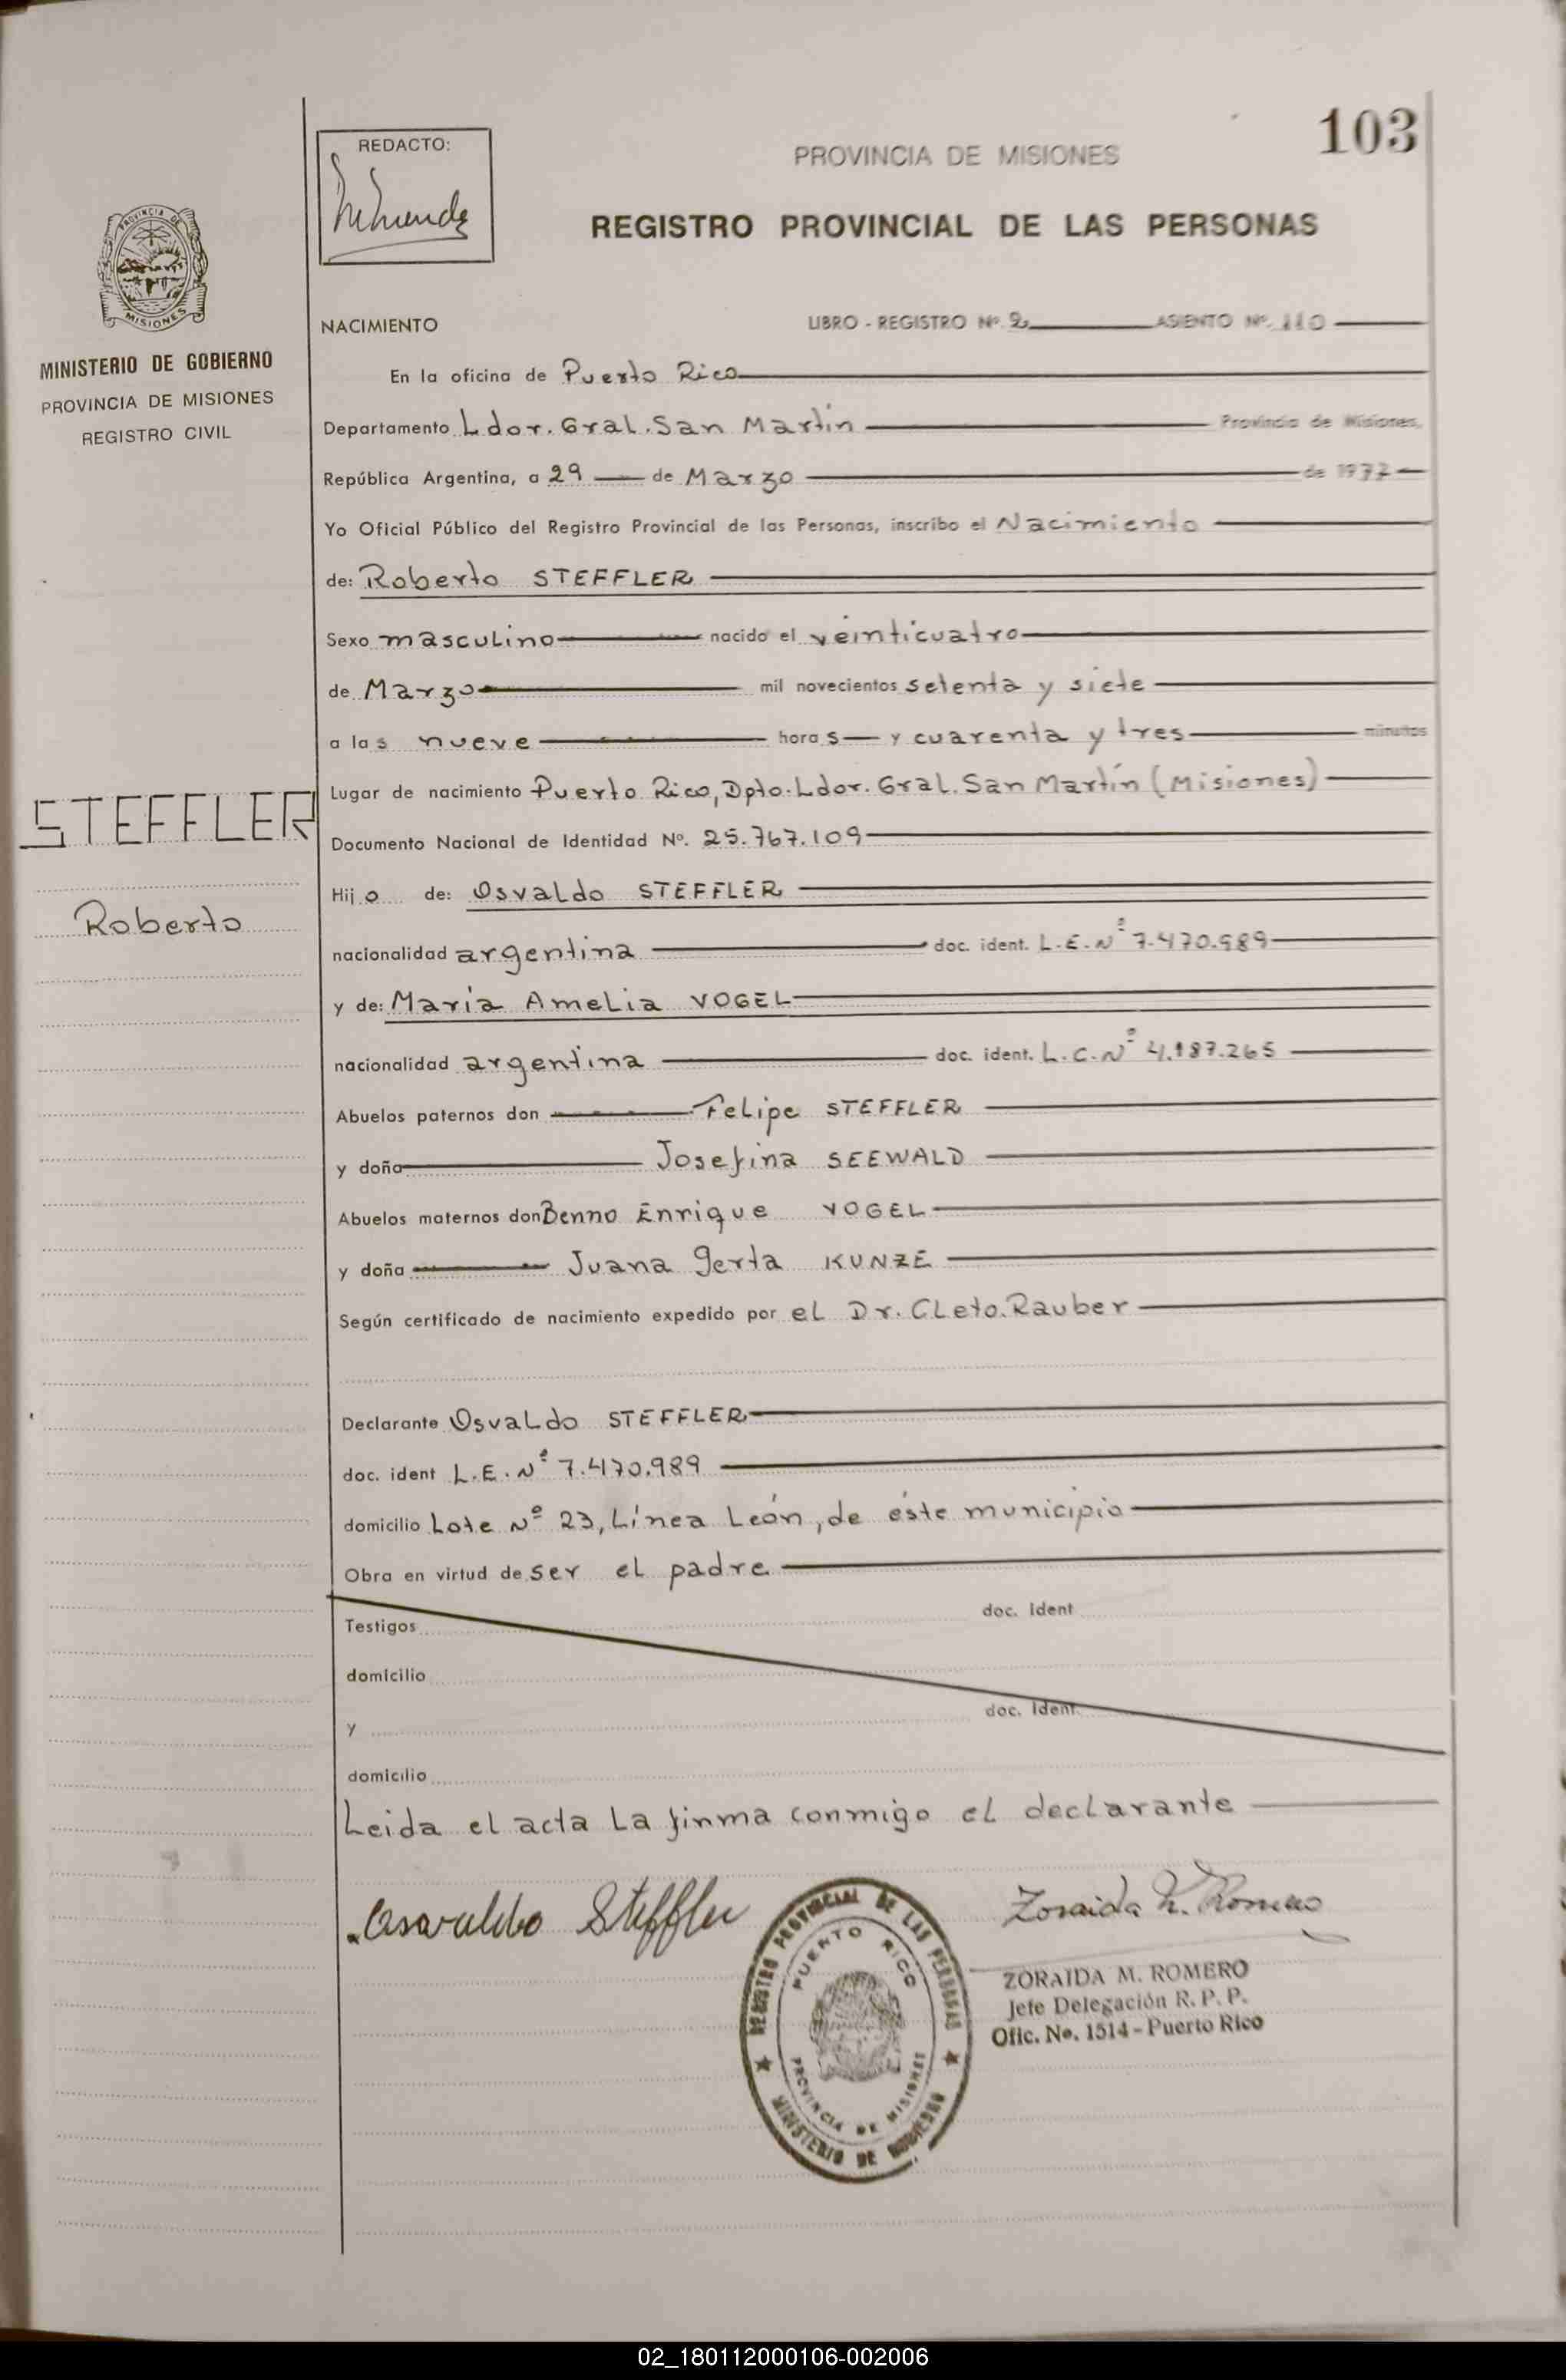 103
REDACTO:
PROVINCIA DE MISIONES
REGISTRO PROVINCIAL DE LAS PERSONAS
PROVINCIA DE
MISIONES
MINISTERIO DE GOBIERNO
PROVINCIA DE MISIONES
REGISTRO CIVIL
NACIMIENTO LIBRO - REGISTRO Nº. 2 ASIENTO Nº. 110
En la oficina de Puerto Rico
Departamento Ldor. Gral. San Martín Provincia de Misiones,
República Argentina, a 29 de Marzo de 1977
Yo Oficial Público del Registro Provincial de las Personas, inscribo el Nacimiento
de: Roberto STEFFLER
Sexo masculino nacido el veinticuatro
de Marzo mil novecientos setenta y siete
a las nueve horas y cuarenta y tres minutos
Lugar de nacimiento Puerto Rico, Dpto. Ldor. Gral. San Martín (Misiones)
STEFFLER
Documento Nacional de Identidad Nº. 25.767.109
Hijo de: Osvaldo STEFFLER
Roberto
nacionalidad argentina doc. ident. L.E.Nº 7.470.989
y de: María Amelia VOGEL
nacionalidad argentina doc. ident. L.C.Nº 4.187.265
Abuelos paternos don Felipe STEFFLER
y doña Josefina SEEWALD
Abuelos maternos don Benno Enrique VOGEL
y doña Juana Gerta KUNZE
Según certificado de nacimiento expedido por el Dr. Cleto.Rauber
Declarante Osvaldo STEFFLER
doc. ident L.E.Nº 7.470.989
domicilio Lote Nº 23, Línea León, de éste municipio
Obra en virtud de ser el padre
Testigos doc. ident
domicilio
y doc. ident.
domicilio
Leida el acta la firma conmigo el declarante
Osvaldo Steffler
Zoraida M. Romero
REGISTRO PROVINCIAL DE LAS PERSONAS
PUERTO RICO
PROVINCIA DE MISIONES
MINISTERIO DE GOBIERNO
ZORAIDA M. ROMERO
Jefe Delegación R. P. P.
Ofic. No. 1514 - Puerto Rico
02_180112000106-002006